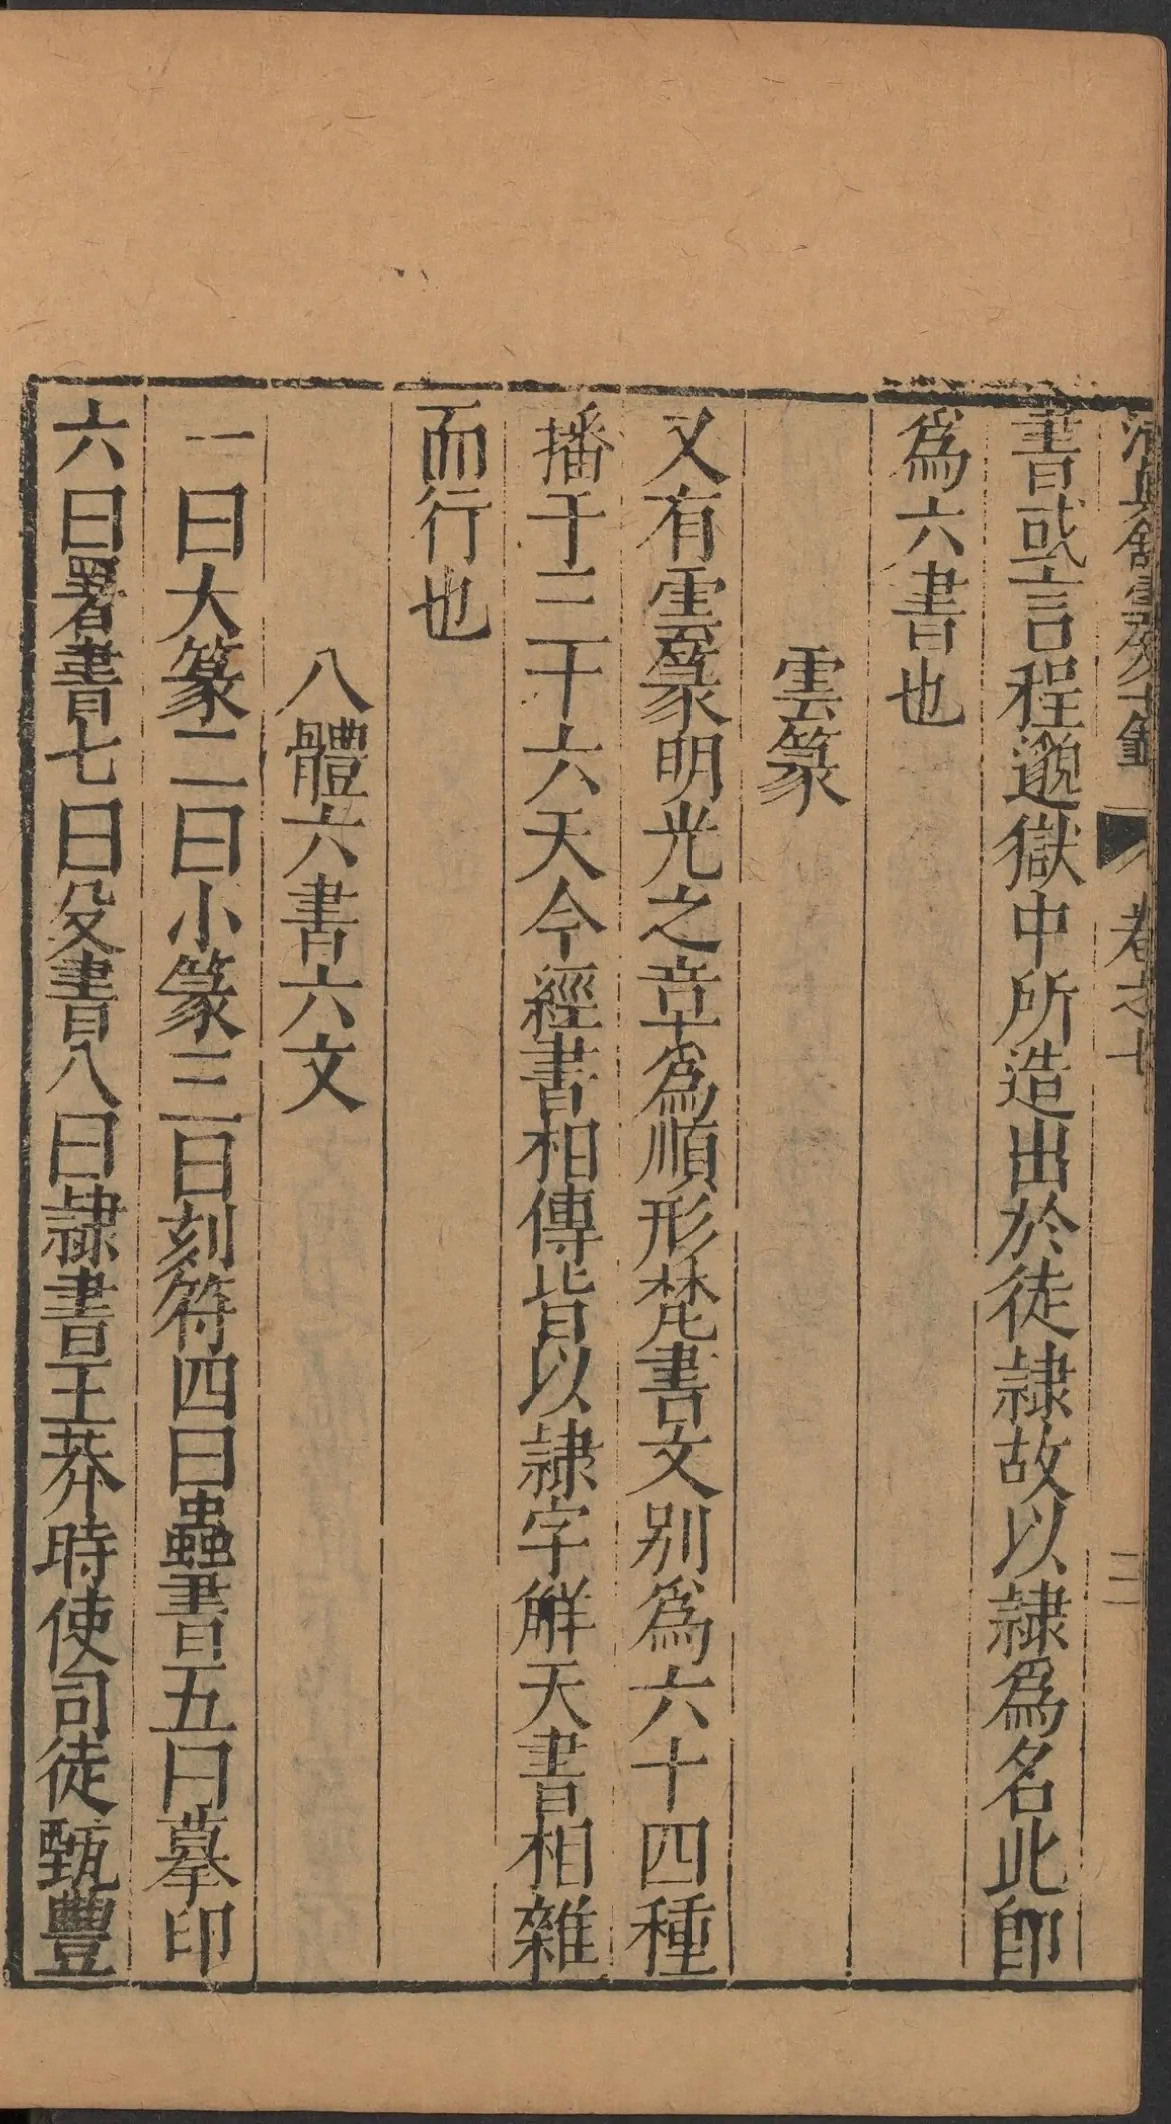 卷之七
二
書或言程邈獄中所造出於徒隷故以隷爲名此卽
爲六書也
雲篆
又有雲篆明光之章爲順形梵書文別爲六十四種
播于三十六天今經書相傳皆以隷字解天書相雜
而行也
八體六書六文
一曰大篆二曰小篆三曰刻符四曰蟲書五曰摹印
六曰署書七曰殳書八曰隷書王莽時使司徒甄豐